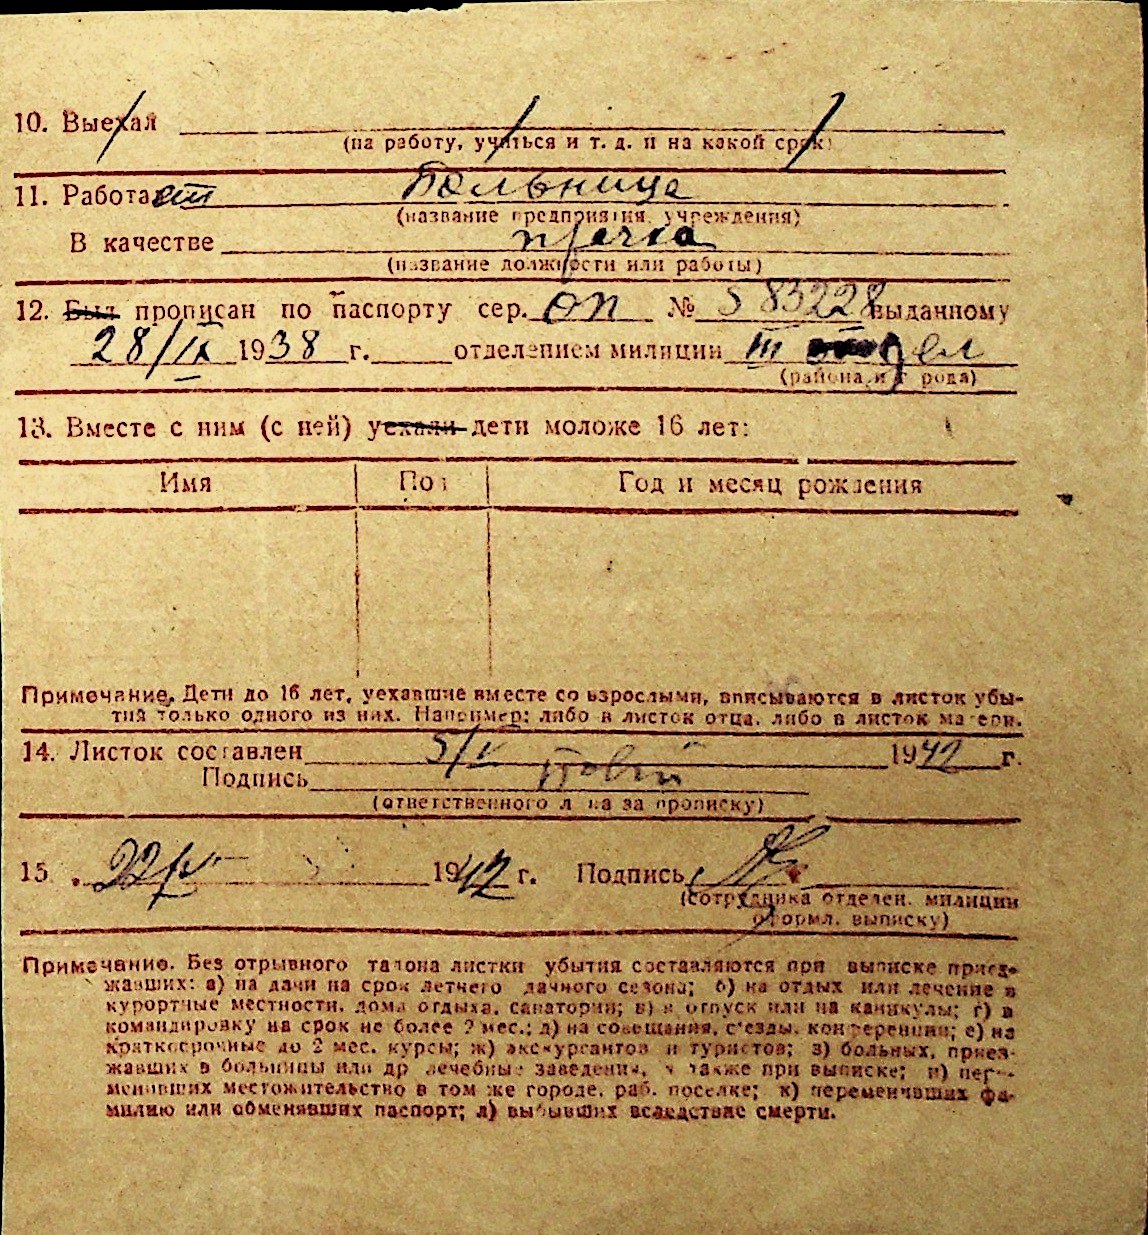 10. Выехал
(на работу, учиться и т. д. и на какой срок)
11. Работает Больница
(название предприятия, учреждения)
В качестве прачка
(название должности или работы)
12. Был прописан по паспорту сер. ОП № 583228 выданному
28/IX 1938 г. отделением милиции III отдел
(района и города)
13. Вместе с ним (с ней) уехали дети моложе 16 лет:
Имя Пол Год и месяц рождения
Примечание. Дети до 16 лет, уехавшие вместе со взрослыми, вписываются в листок убы-
тия только одного из них. Например: либо в листок отца, либо в листок матери.
14. Листок составлен 5/V 1942 г.
Подпись
(ответственного лица за прописку)
15 . 22/V 1942 г. Подпись
(сотрудника отделен. милиции
оформл. выписку)
Примечание. Без отрывного талона листки убытия составляются при выписке приез-
жавших: а) на дачи на срок летнего дачного сезона; б) на отдых или лечение в
курортные местности, дома отдыха, санатории; в) в отпуск или на каникулы; г) в
командировку на срок не более 2 мес.; д) на совещания, с'езды, конференции; е) на
краткосрочные до 2 мес. курсы; ж) экскурсантов и туристов; з) больных, приез-
жавших в больницы или др лечебные заведения, а также при выписке; и) пере-
менивших местожительство в том же городе, раб. поселке; к) переменивших фа-
милию или обменявших паспорт; л) выбывших вследствие смерти.